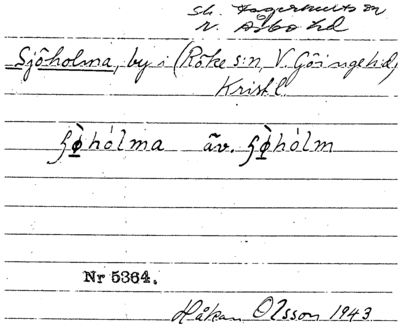 sk. Fagerhults sn
r. Åsbo hd
Sjöholma, by i (Röke s:n, V. Göinge hd,
Krist. l.
ʃø̀hólma äv. ʃø̀hólm
Nr 5364.
Håkan Olsson 1943